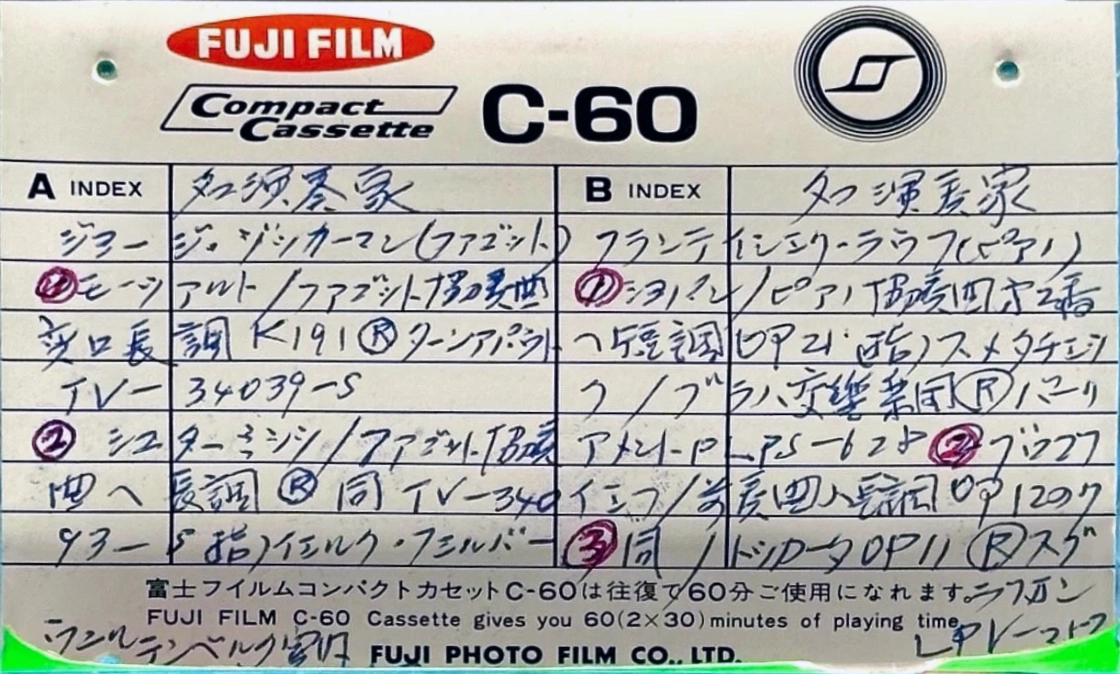 FUJI FILM
Compact Cassette C-60
A INDEX 名演奏家
ジョージ・ヅカーマン(ファゴット)
① モーツアルト/ファゴット協奏曲
変ロ長調 K191 Ⓡ ターンアバウト
TV-34039-S
② シュターミッツ/ファゴット協奏
曲ヘ長調 Ⓡ 同 TV-340
93-S 指)イエルク・フェルバー
B INDEX 名演奏家
フランティシェク・ラウフ(ピアノ)
① ショパン/ピアノ協奏曲才2番
ヘ短調 OP21 指)スメタチェッ
ク/プラハ交響楽団 Ⓡ パーリ
アメント ② プロコフ
/前奏曲ハ長調 OP12の7
③ 同/トッカータOP11 Ⓡ スプ
富士フイルムコンパクトカセットC-60は往復で60分ご使用になれます。
ラフォン
FUJI FILM C-60 Cassette gives you 60(2×30) minutes of playing time.
テンベルク室内
FUJI PHOTO FILM CO., LTD.